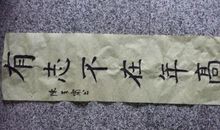 有志不在年高